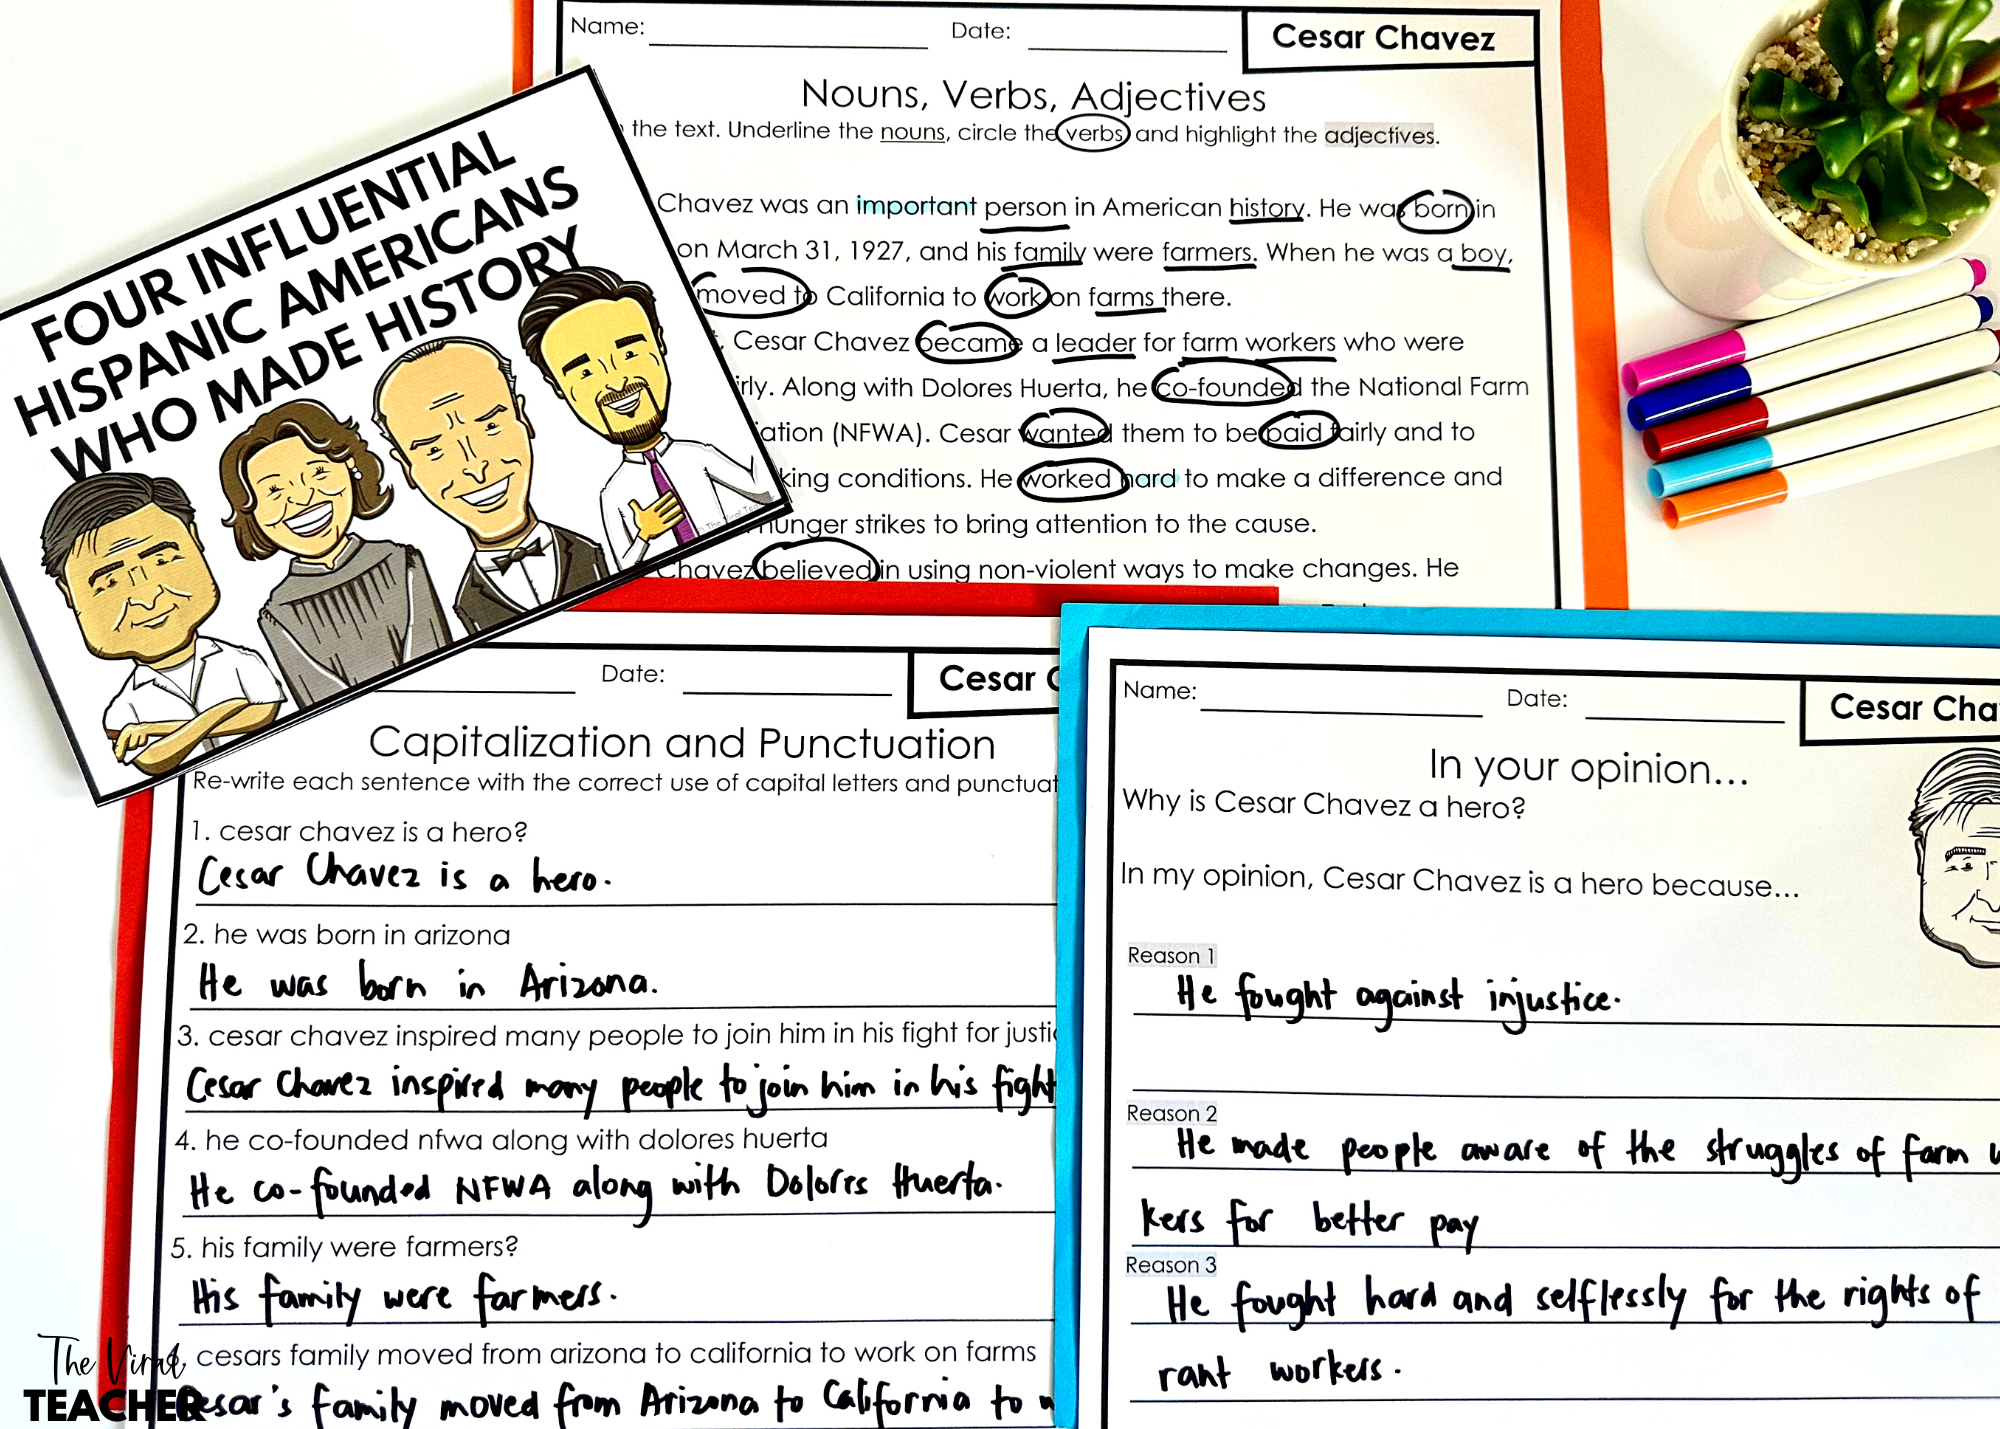 FOUR INFLUENTIAL
HISPANIC AMERICANS
WHO MADE HISTORY
© The Viral
Name: Date: Cesar Chavez
Nouns, Verbs, Adjectives
the text. Underline the nouns, circle the verbs and highlight the adjectives.
Chavez was an important person in American history. He was born in
on March 31, 1927, and his family were farmers. When he was a boy,
moved to California to work on farms there.
Cesar Chavez became a leader for farm workers who were
rly. Along with Dolores Huerta, he co-founded the National Farm
ation (NFWA). Cesar wanted them to be paid fairly and to
king conditions. He worked hard to make a difference and
hunger strikes to bring attention to the cause.
Chavez believed in using non-violent ways to make changes. He
Name: Date: Cesar Cha
In your opinion...
Why is Cesar Chavez a hero?
In my opinion, Cesar Chavez is a hero because...
Reason 1
He fought against injustice.
Reason 2
He made people aware of the struggles of farm
kers for better pay
Reason 3
He fought hard and selflessly for the rights of
rant workers.
Date: Cesar
Capitalization and Punctuation
Re-write each sentence with the correct use of capital letters and punctuat
1. cesar chavez is a hero?
Cesar Chavez is a hero.
2. he was born in arizona
He was born in Arizona.
3. cesar chavez inspired many people to join him in his fight for justi
Cesar Chavez inspired many people to join him in his fight
4. he co-founded nfwa along with dolores huerta
He co-founded NFWA along with Dolores Huerta.
5. his family were farmers?
His family were farmers.
cesars family moved from arizona to california to work on farms
Cesar's family moved from Arizona to California to
The Viral
TEACHER